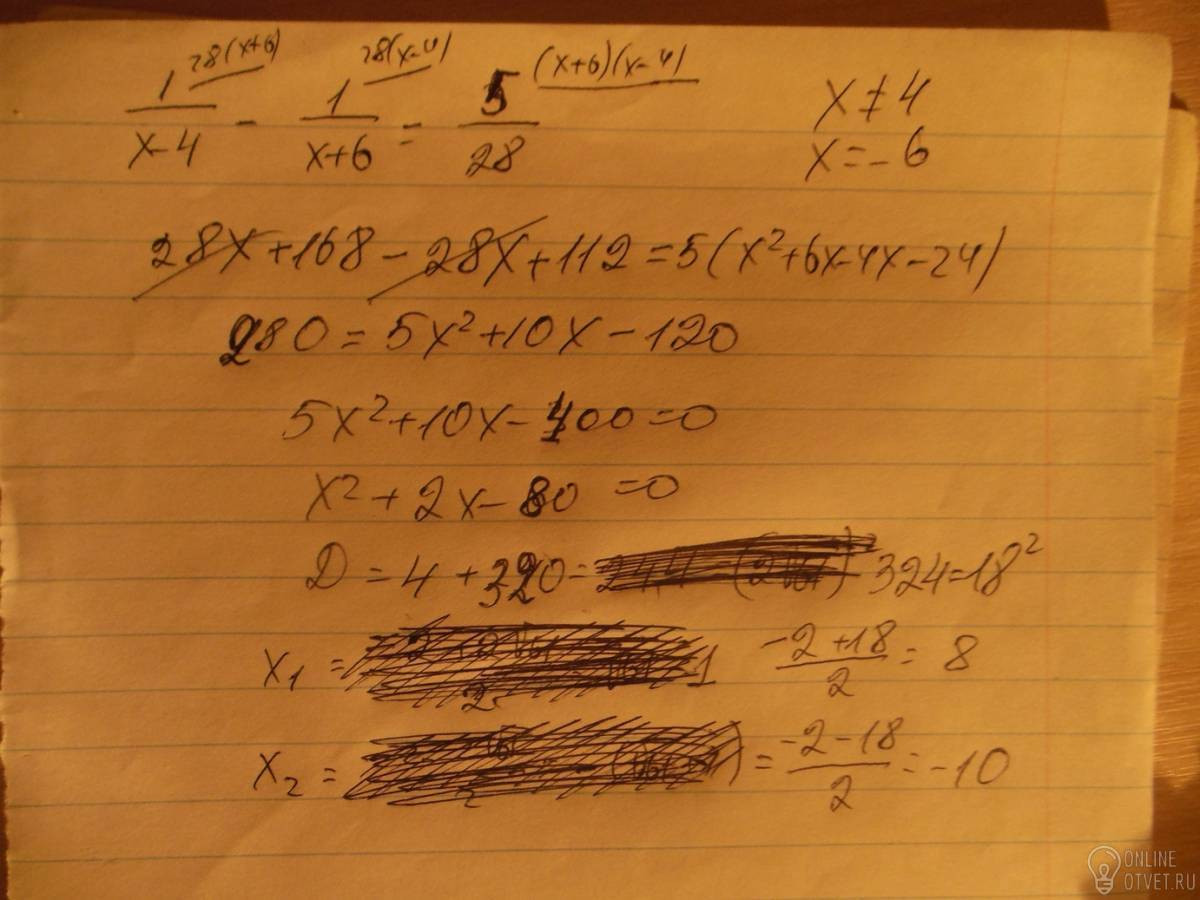 1/(x-4) 28(x+6) - 1/(x+6) 28(x-4) = 5/28 (x+6)(x-4)
x ≠ 4
x = -6
28x + 168 - 28x + 112 = 5(x² + 6x - 4x - 24)
280 = 5x² + 10x - 120
5x² + 10x - 400 = 0
x² + 2x - 80 = 0
D = 4 + 320 = 324 = 18²
x₁ = (-2 + 18)/2 = 8
x₂ = = (-2 - 18)/2 = -10
ONLINE
OTVET.RU